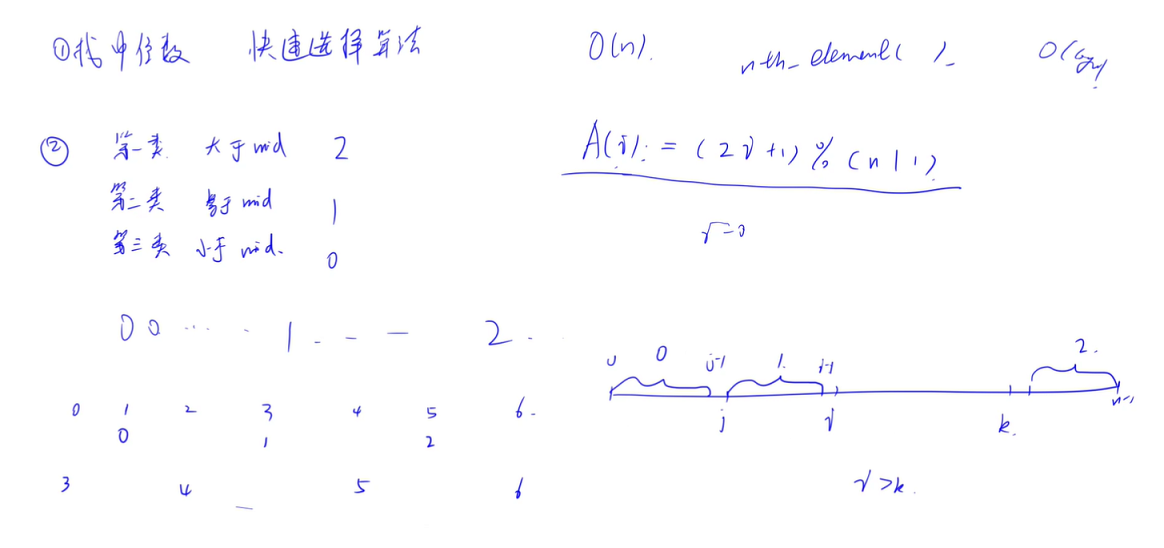 ①找中位数 快速选择算法 O(n). nth_element( )_ O(logn)
② 第一类 大于mid 2
第二类 等于mid 1
第三类 小于mid. 0
A(i) = (2i+1) % (n|1)
i=0
0 0 ... . 1 . - — 2 .
0 1 2 3 4 5 6.
0 1 2
3 4 5 6
0 0 j-1 1. i-1 2. n-1
j i k.
i>k.